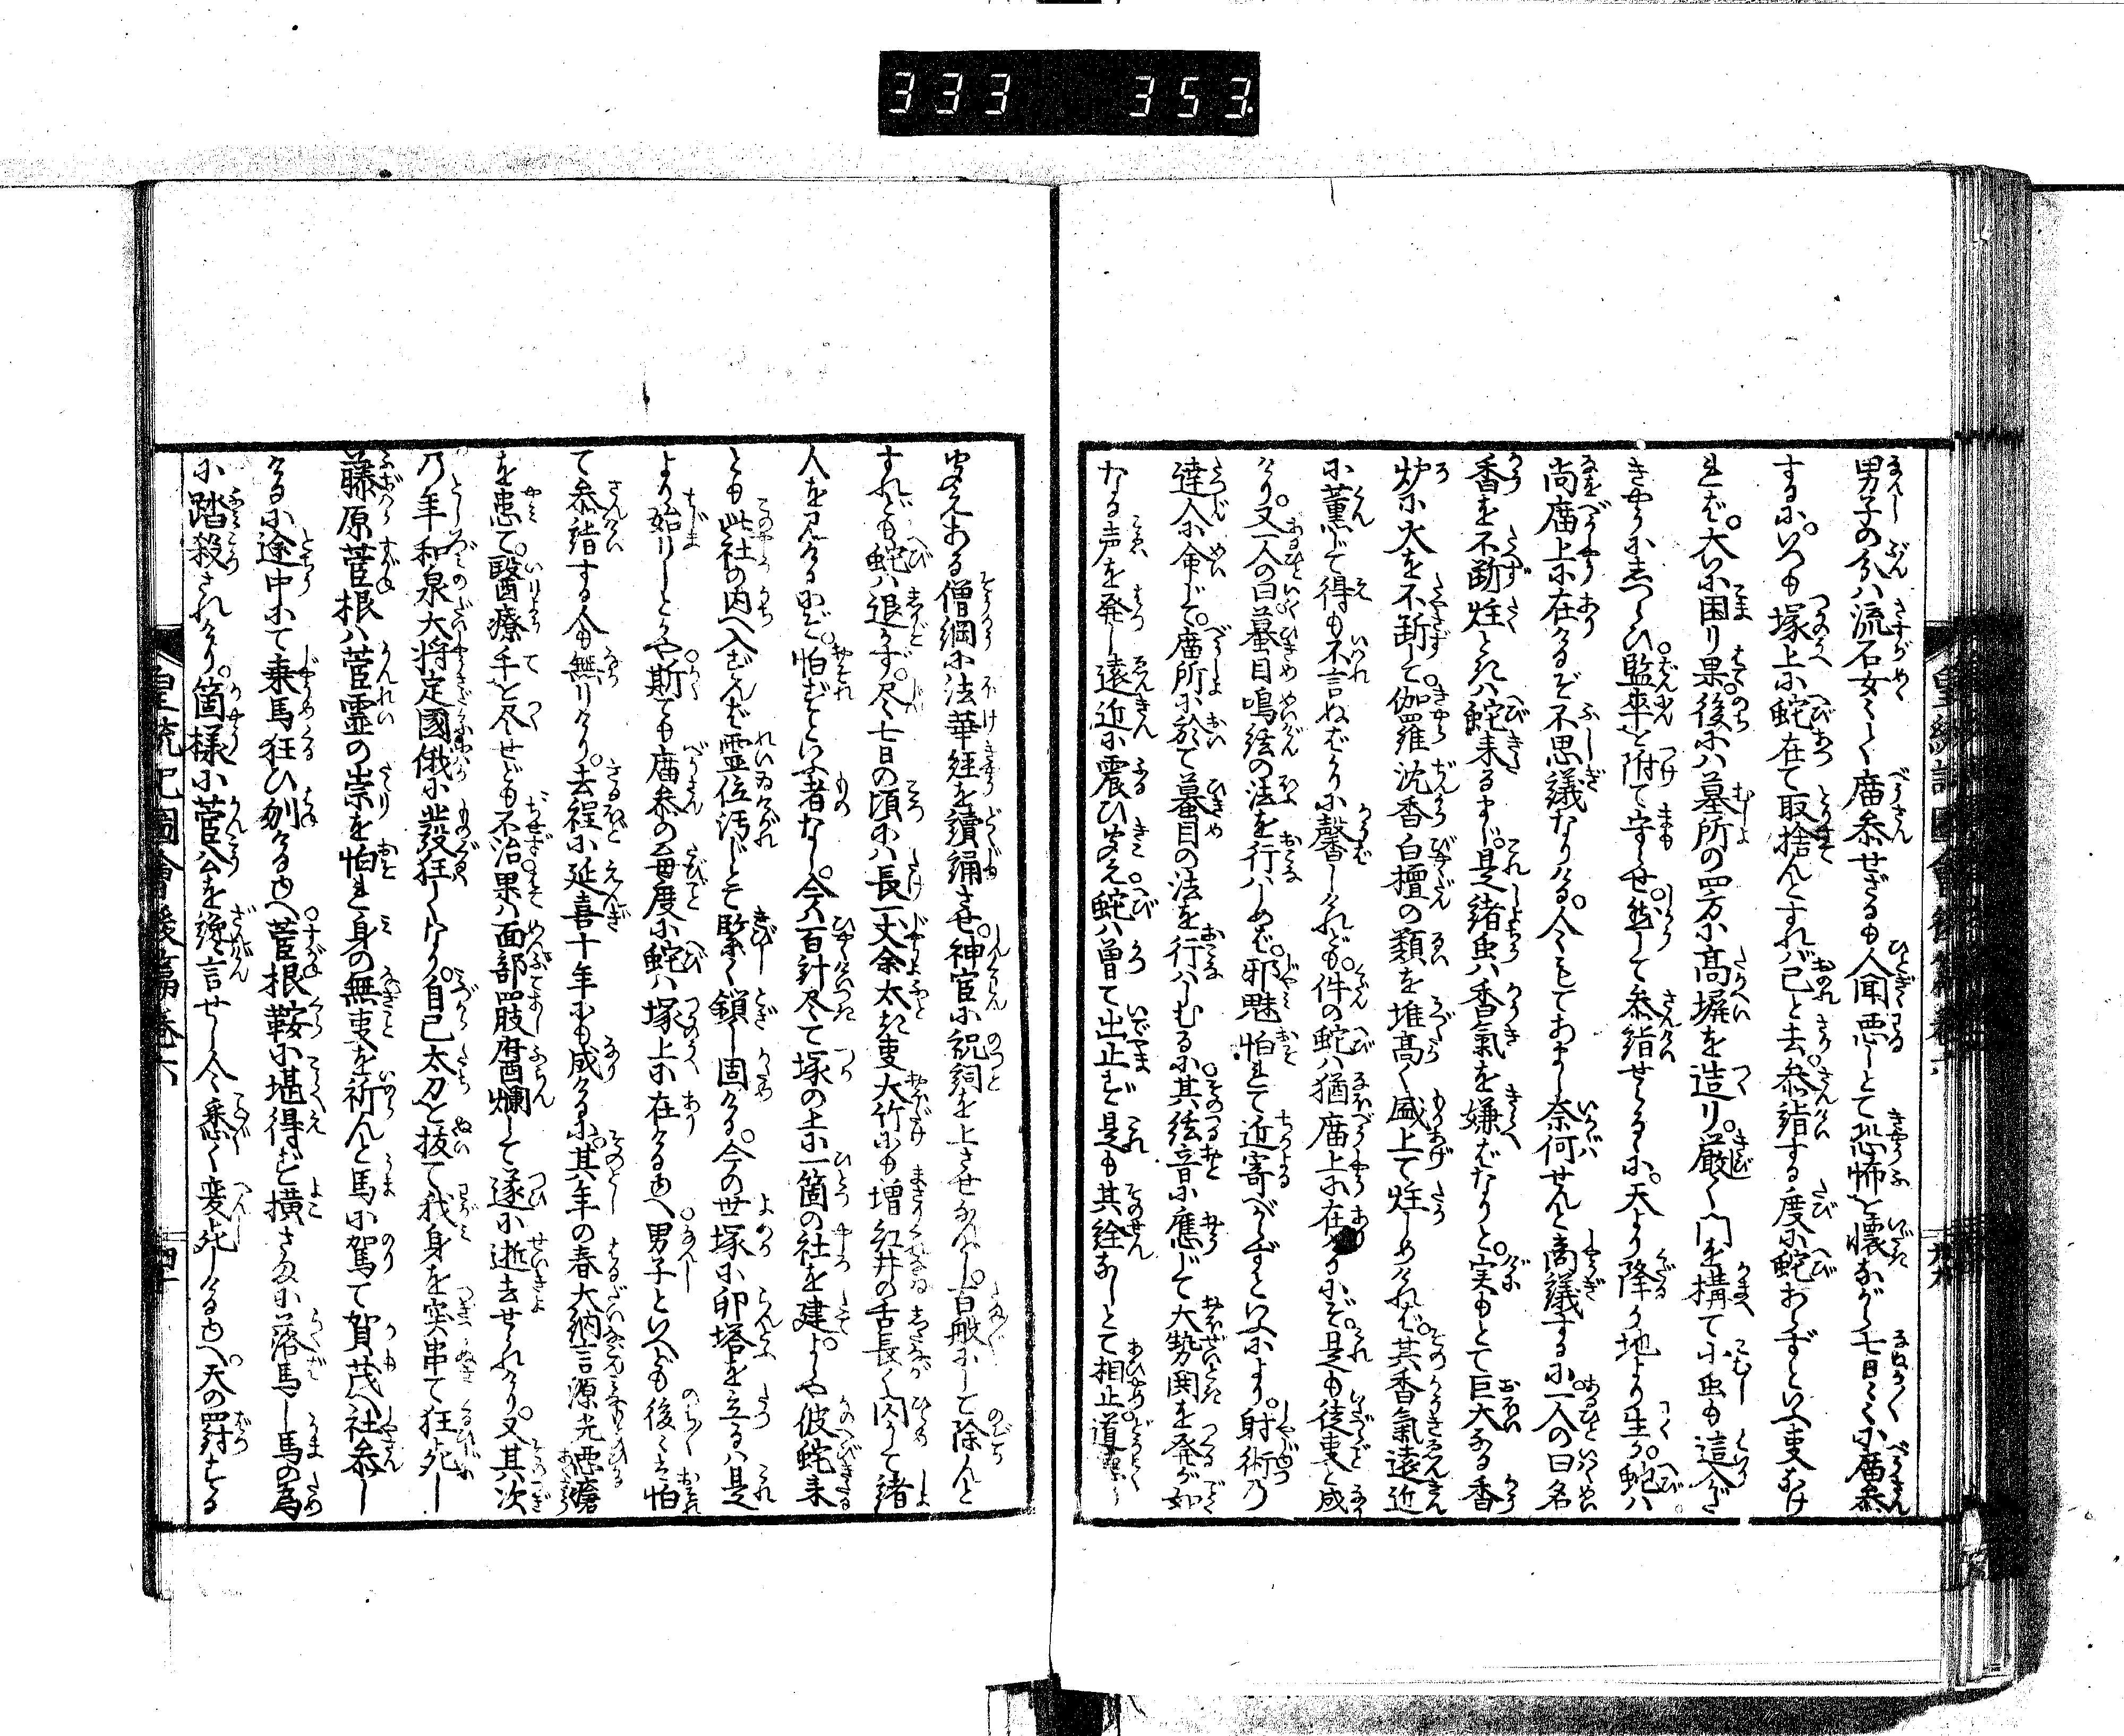 333 353
男子の分ハ流石女々しく廟参せざるも人聞悪しとて恐怖を懐ながら七日〳〵に廟参
するに。いつも塚上に蛇在て取捨んとすれバ己と去。参詣する度に蛇おらずといふ事なけ
れば。大に困り果後にハ墓所の四方に高塀を造り。厳く門を構て小虫も這入ざ
きやうにしつらひ監卒を附て守らせ。然して参詣せらるるに。天より降か地より生か。蛇ハ
尚廟上に在けるぞ不思議なりける。人々もてあまし奈何せんと商議するに一人の曰名
香を不断炷ときハ蛇来るまじ。是緒虫ハ香氣を嫌ばなりと。実もとて巨大なる香
炉に火を不断して。伽羅沈香白檀の類を堆高く盛上て炷しめければ。其香氣遠近
に薫じて得も不言ぬばかりに馨しけれども。件の蛇ハ猶廟上に在けるにぞ。是も徒事と成
けり。又一人の曰蟇目鳴絃の法を行ハしめバ。邪魅怕れて近寄べからずといふにより。射術乃
達人に命じて。廟所に於て蟇目の法を行ハしむるに其絃音に應じて大勢鬨を発が如
なる声を発し遠近に震ひ聞え蛇ハ曽て出止まず是も其詮なしとて相止道徳
聞えある僧綱に法華経を讀誦させ。神官に祝詞を上させなんどし。百般にして除んと
すれども蛇ハ退かず。尽七日の頃にハ長一丈余太さ大竹にも増紅井の舌長く閃かて緒
人を見るにぞ。怕ずといふ者なし。今ハ百計尽て塚の上に一箇の社を建。よしや彼蛇来
とも此社の内へ入ざんば霊位汚じとて緊く鎖し固ける。今の世塚に卵塔を立るハ是
より始りしとかや斯ても廟参の毎度に蛇ハ塚上に在けるゆへ。男子といへども後々ハ怕
て参詣する人も無りけり。去程に延喜十年にも成けるに。其年の春大納言源光悪瘡
を患て。醫療手を尽せども不治果ハ面部四肢腐爛して遂に逝去せられけり。又其次
乃年和泉大将定國俄に発狂しけり。自己太刀を抜て我身を突串て狂死し
藤原菅根ハ菅霊の祟を怕れ身の無事を祈んと馬に駕て賀茂へ社参し
けるに途中にて乗馬狂ひ刎けるゆへ。菅根鞍に堪得ず横さまに落馬し馬の為
に踏殺されけり。箇様に菅公を讒言せし人々悉く変死しけるゆへ。天の罰する
皇統記圖會後篇巻六